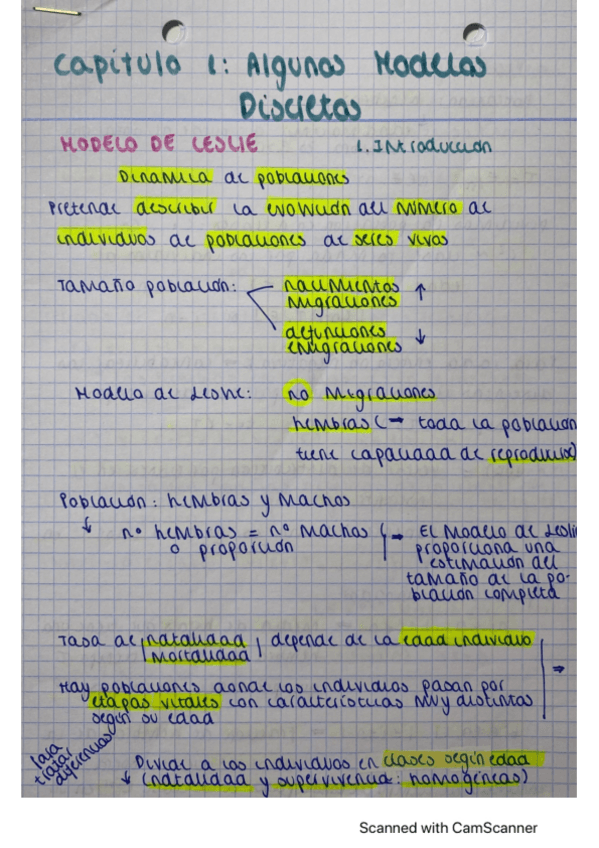 Capítulo 1: Algunos Modelos
Discretos
MODELO DE LESLIE 1. Introducción
Dinámica de poblaciones
Pretende describir la evolución del número de
individuos de poblaciones de seres vivos
Tamaño población: nacimientos
migraciones ↑
defunciones
emigraciones ↓
Modelo de Leslie: no migraciones
hembras (→ toda la población
tiene capacidad de reproducirse)
Población: hembras y machos
↓ nº hembras = nº machos → El modelo de Leslie
o proporción proporciona una
estimación del
tamaño de la po-
blación completa
Tasa de natalidad depende de la edad individuo
mortalidad
⇒
Hay poblaciones donde los individuos pasan por
etapas vitales con características muy distintas
según su edad
para
tratar
diferencias
Dividir a los individuos en clases según edad
↓ (natalidad y supervivencia: homogéneas)
Scanned with CamScanner